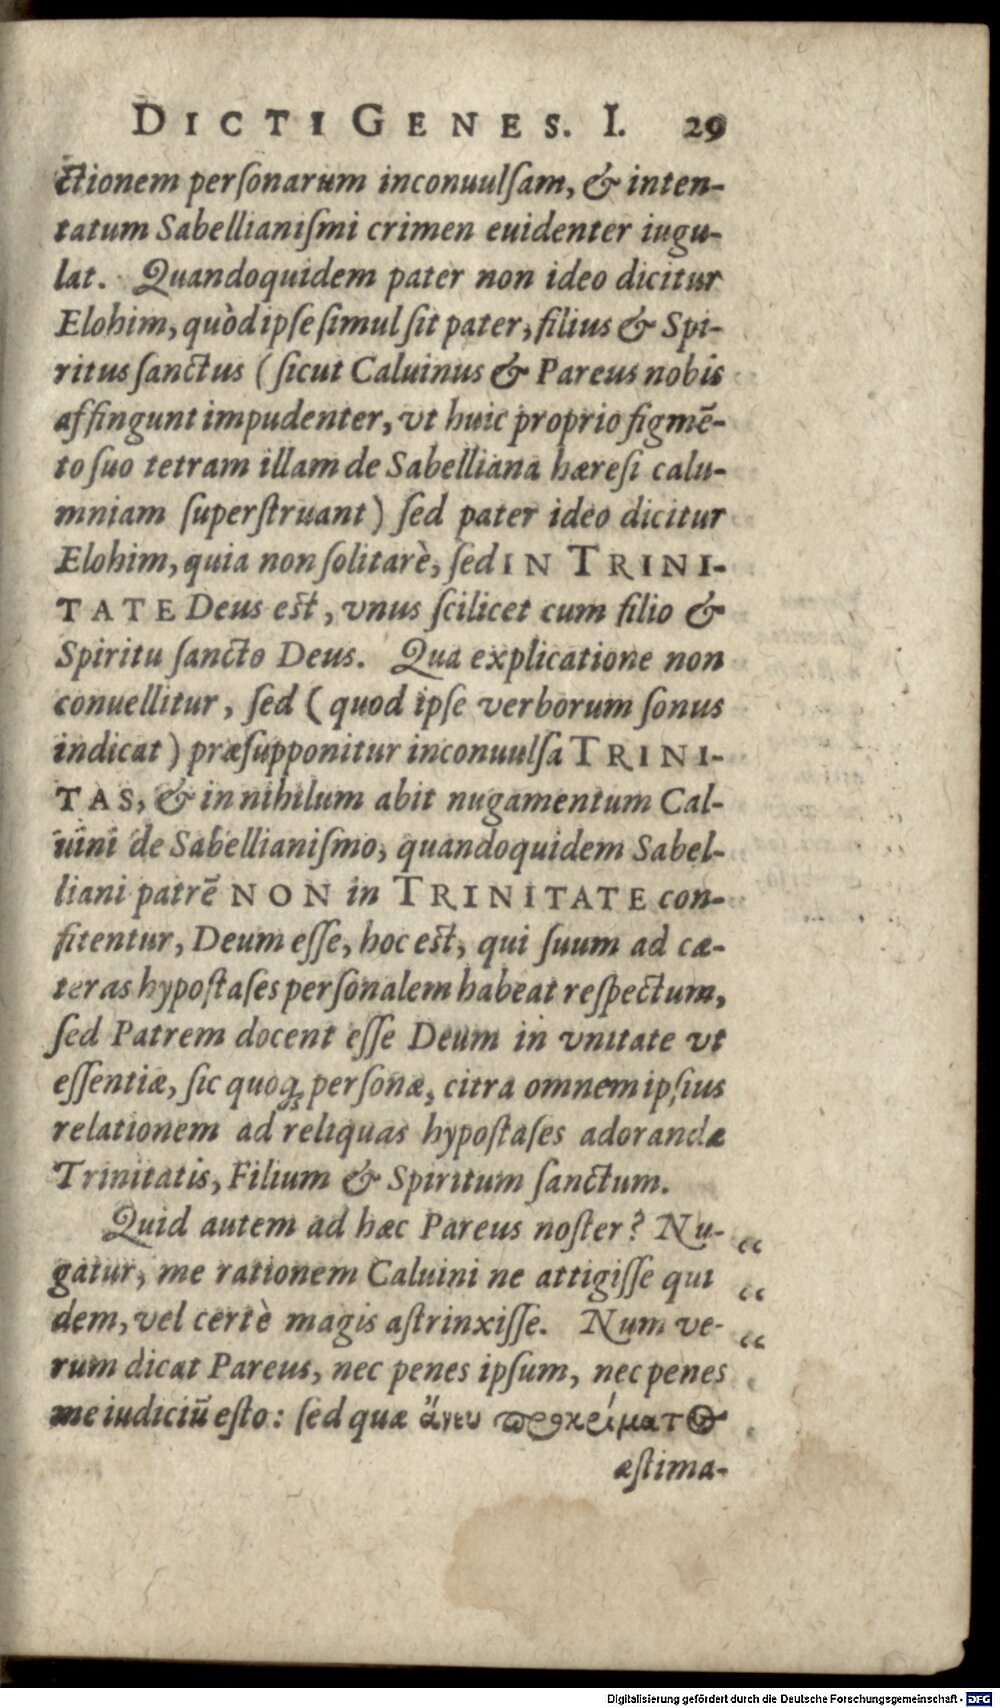 DICTI GENES. I. 29
ctionem perſonarum inconuulſam, & inten-
tatum Sabellianiſmi crimen euidenter iugu-
lat. Quandoquidem pater non ideo dicitur
Elohim, quòd ipſe ſimul ſit pater, filius & Spi-
ritus ſanctus (ſicut Caluinus & Pareus nobis
affingunt impudenter, vt huic proprio figmē-
to ſuo tetram illam de Sabelliana hæreſi calu-
mniam ſuperſtruant) ſed pater ideo dicitur
Elohim, quia non ſolitarè, ſed IN TRINI-
TATE Deus eſt, vnus ſcilicet cum filio &
Spiritu ſancto Deus. Qua explicatione non
conuellitur, ſed (quod ipſe verborum ſonus
indicat) præſupponitur inconuulſa TRINI-
TAS, & in nihilum abit nugamentum Cal-
uini de Sabellianiſmo, quandoquidem Sabel-
liani patrē NON in TRINITATE con-
fitentur, Deum eſſe, hoc eſt, qui ſuum ad cæ-
teras hypoſtaſes perſonalem habeat reſpectum,
ſed Patrem docent eſſe Deum in vnitate vt
eſſentiæ, ſic quoq; perſonæ, citra omnem ipſius
relationem ad reliquas hypoſtaſes adorandæ
Trinitatis, Filium & Spiritum ſanctum.
Quid autem ad hæc Pareus noſter? Nu- “
gatur, me rationem Caluini ne attigiſſe qui “
dem, vel certè magis aſtrinxiſſe. Num ve- “
rum dicat Pareus, nec penes ipſum, nec penes
me iudiciū eſto: ſed quæ ἄνευ προκρίματος
æſtima-
Digitalisierung gefördert durch die Deutsche Forschungsgemeinschaft - DFG